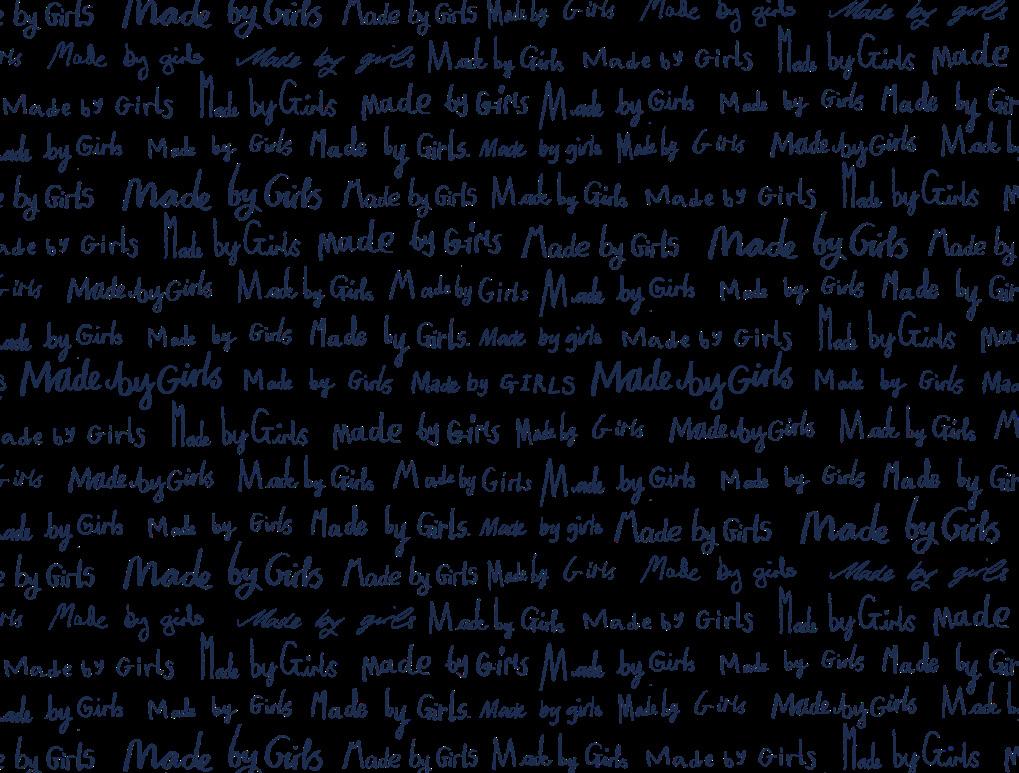 by Girls Made by Girls Made by Girls Made by Girls Made by girls Made by girls
Made by girls Made by girls Made by Girls Made by Girls Made by Girls made
Made by Girls Made by Girls made by Girls Made by Girls Made by Girls Made by
by Girls Made by Girls Made by Girls. Made by girls Made by Girls Made by Girls Made
by Girls Made by Girls Made by Girls Made by Girls Made by Girls Made by Girls
by Girls Made by Girls made by Girls Made by Girls Made by Girls Made by
Girls Made by Girls Made by Girls Made by Girls Made by Girls Made by Girls Made by
by Girls Made by Girls Made by Girls. Made by girls Made by Girls Made by Girls
Made by Girls Made by Girls Made by GIRLS Made by Girls Made by Girls
by Girls Made by Girls made by Girls Made by Girls Made by Girls Made by Girls
Girls Made by Girls Made by Girls Made by Girls Made by Girls Made by Girls Made by
by Girls Made by Girls Made by Girls. Made by girls Made by Girls Made by Girls
by Girls Made by Girls Made by Girls Made by Girls Made by girls Made by girls
Made by girls Made by girls Made by Girls Made by Girls Made by Girls made
Made by Girls Made by Girls made by Girls Made by Girls Made by Girls Made by
by Girls Made by Girls Made by Girls. Made by girls Made by Girls Made by Girls Made
by Girls Made by Girls Made by Girls Made by Girls Made by Girls Made by Girls